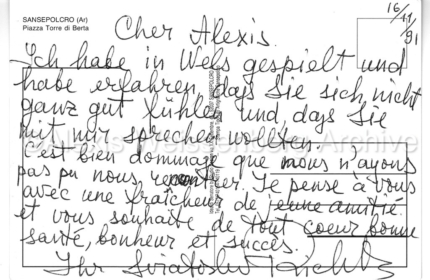 SANSEPOLCRO (Ar)
Piazza Torre di Berta
16/11/91
Cher Alexis.
Ich habe in Wels gespielt und
habe erfahren, dass Sie sich nicht
ganz gut fühlen und, dass Sie
mit mir sprechen wollten.
C'est bien dommage que nous n'ayons
pas pu nous rencontrer. Je pense à vous
avec une fraîcheur de jeune amitié
et vous souhaite de tout coeur bonne
santé, bonheur et succès.
Ihr Sviatoslav Richter